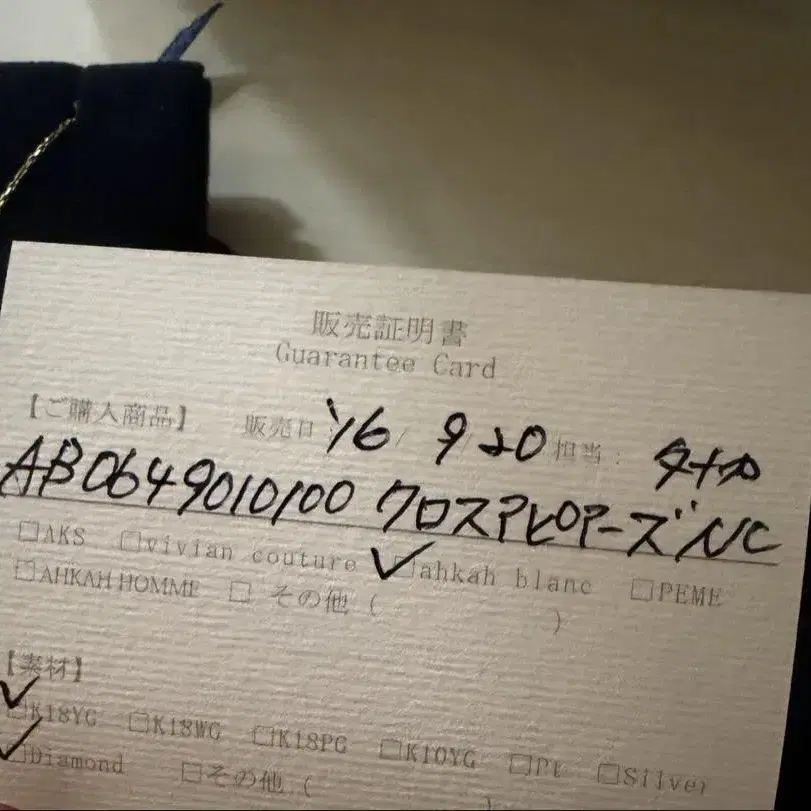 販売証明書
Guarantee Card
【ご購入商品】 販売日 '16 / 9 / 20 担当:
AB0649010100 クロスアピアーズNC
□AKS □vivian couture ✓□ahkah blanc □PEME
□AHKAH HOMME □ その他 ( )
【素材】
✓□K18YG □K18WG □K18PG □K10YG □Pt □Silver
✓□Diamond □その他 ( )